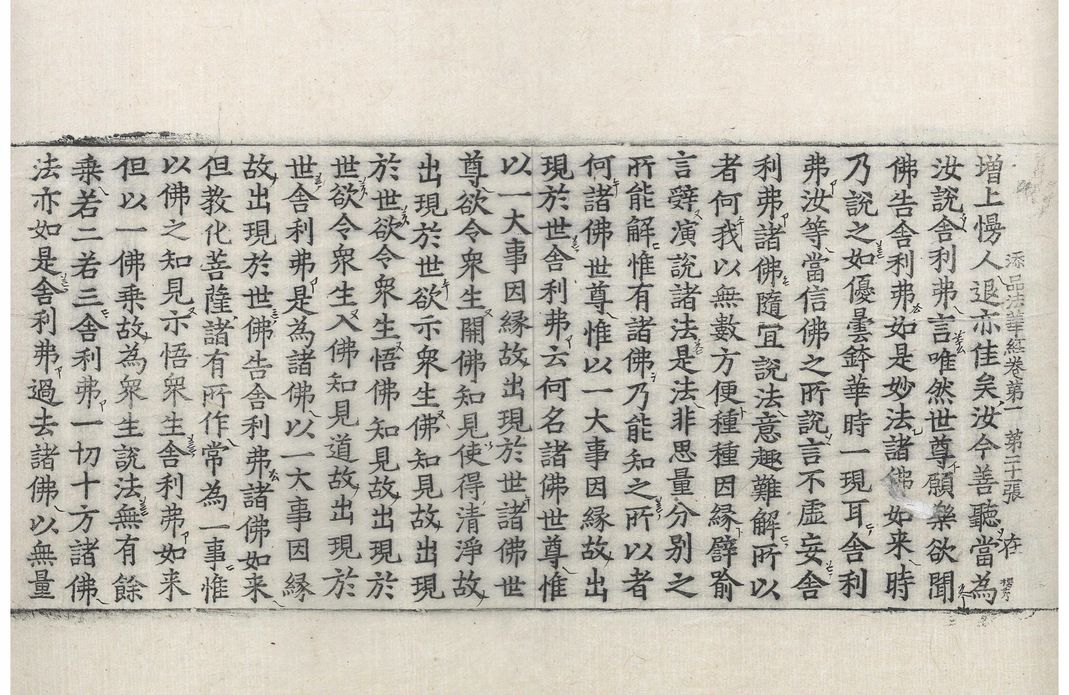 添品法華經卷第一 第二十張 在
増上慢人退亦佳矣汝今善聽當為
汝說舍利弗言唯然世尊願樂欲聞
佛告舍利弗如是妙法諸佛如来時
乃說之如優曇鉢華時一現耳舍利
弗汝等當信佛之所說言不虛妄舍
利弗諸佛隨冝說法意趣難解所以
者何我以無數方便種種因縁譬喻
言辭演說諸法是法非思量分別之
所能解惟有諸佛乃能知之所以者
何諸佛世尊惟以一大事因縁故出
現於世舍利弗云何名諸佛世尊惟
以一大事因縁故出現於世諸佛世
尊欲令衆生開佛知見使得清淨故
出現於世欲示衆生佛知見故出現
於世欲令衆生悟佛知見故出現於
世欲令衆生入佛知見道故出現於
世舍利弗是為諸佛以一大事因縁
故出現於世佛告舍利弗諸佛如来
但教化菩薩諸有所作常為一事惟
以佛之知見示悟衆生舍利弗如来
但以一佛乗故為衆生說法無有餘
乗若二若三舍利弗一切十方諸佛
法亦如是舍利弗過去諸佛以無量